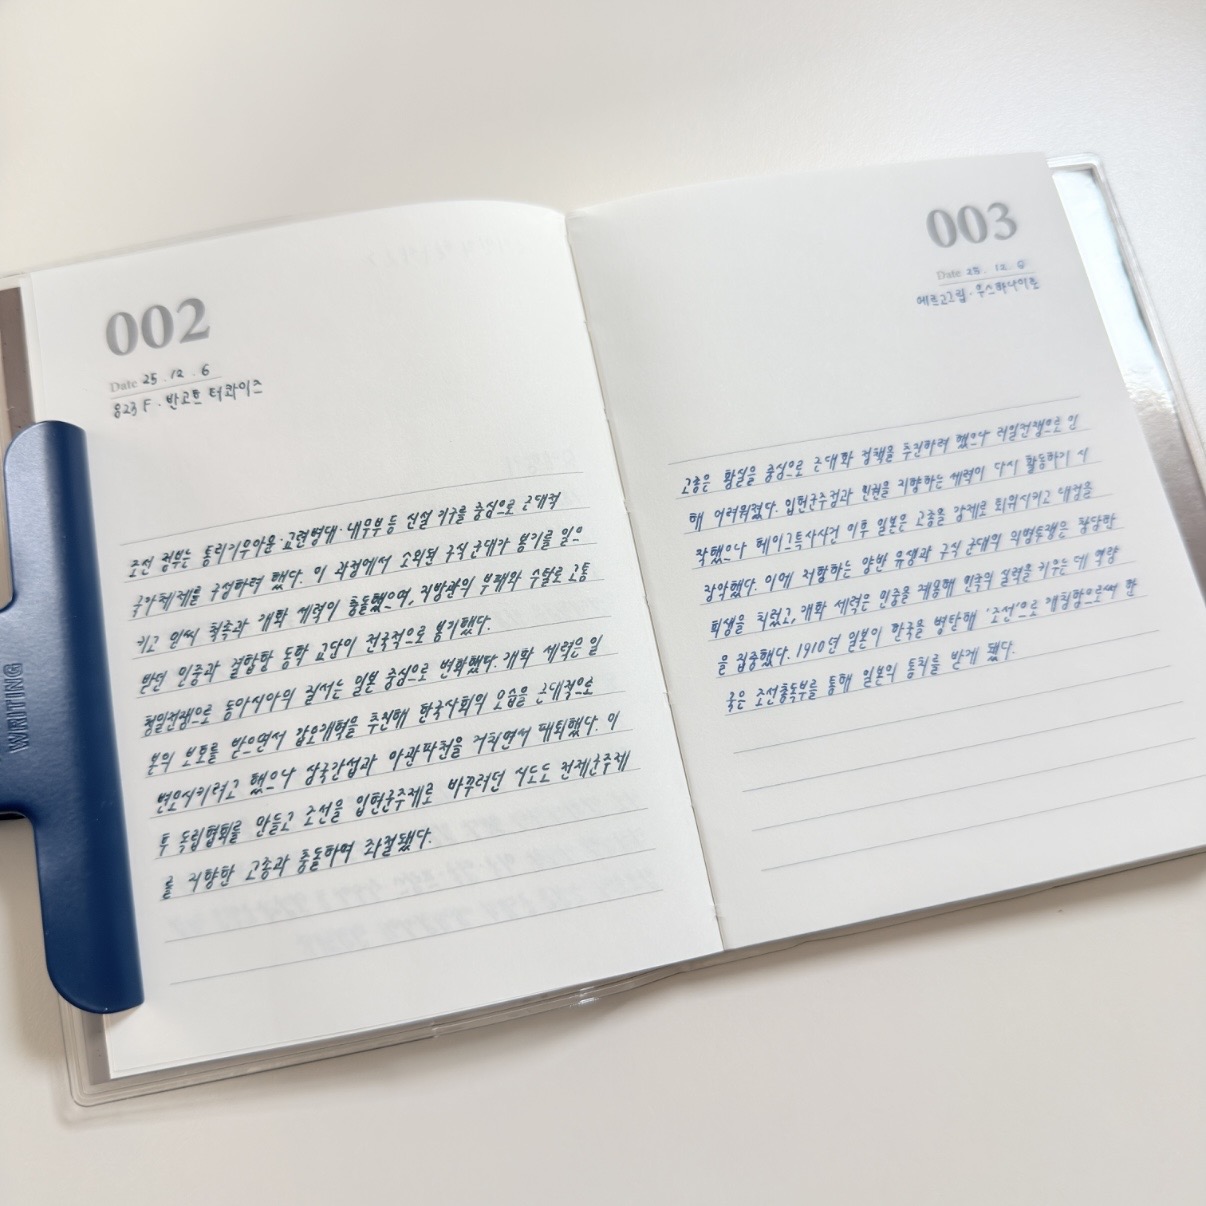 WRITING
002
Date 25. 12. 6
823 F · 반고흐 터콰이즈
조선 정부는 통리기무아문·교련병대·내무부 등 신설 기구를 중심으로 근대적
국가체제를 구성하려 했다. 이 과정에서 소외된 구식군대가 봉기를 일으
키고 민씨 척족과 개화 세력이 충돌했으며, 지방관의 부패와 수탈로 고통
받던 민중과 결합한 동학 교단이 전국적으로 봉기했다.
청일전쟁으로 동아시아의 질서는 일본 중심으로 변화했다. 개화 세력은 일
본의 보호를 받으면서 갑오개혁을 추진해 한국사회의 모습을 근대적으로
변모시키려고 했으나 삼국간섭과 아관파천을 거치면서 패퇴했다. 이
후 독립협회를 만들고 조선을 입헌군주제로 바꾸려던 시도도 전제군주제
를 지향한 고종과 충돌하여 좌절됐다.
003
Date 25. 12. 6
에르고그립·우스하나이로
고종은 황실을 중심으로 근대화 정책을 추진하려 했으나 러일전쟁으로 인
해 어려워졌다. 입헌군주정과 민권을 지향하는 세력이 다시 활동하기 시
작했으나 헤이그특사사건 이후 일본은 고종을 강제로 퇴위시키고 대한을
장악했다. 이에 저항하는 양반 유생과 구식 군대의 의병투쟁은 상당한
희생을 치렀고, 개화 세력은 민중을 계몽해 민족의 실력을 키우는 데 역량
을 집중했다. 1910년 일본이 한국을 병탄해 '조선'으로 개칭함으로써 한
국은 조선총독부를 통해 일본의 통치를 받게 됐다.